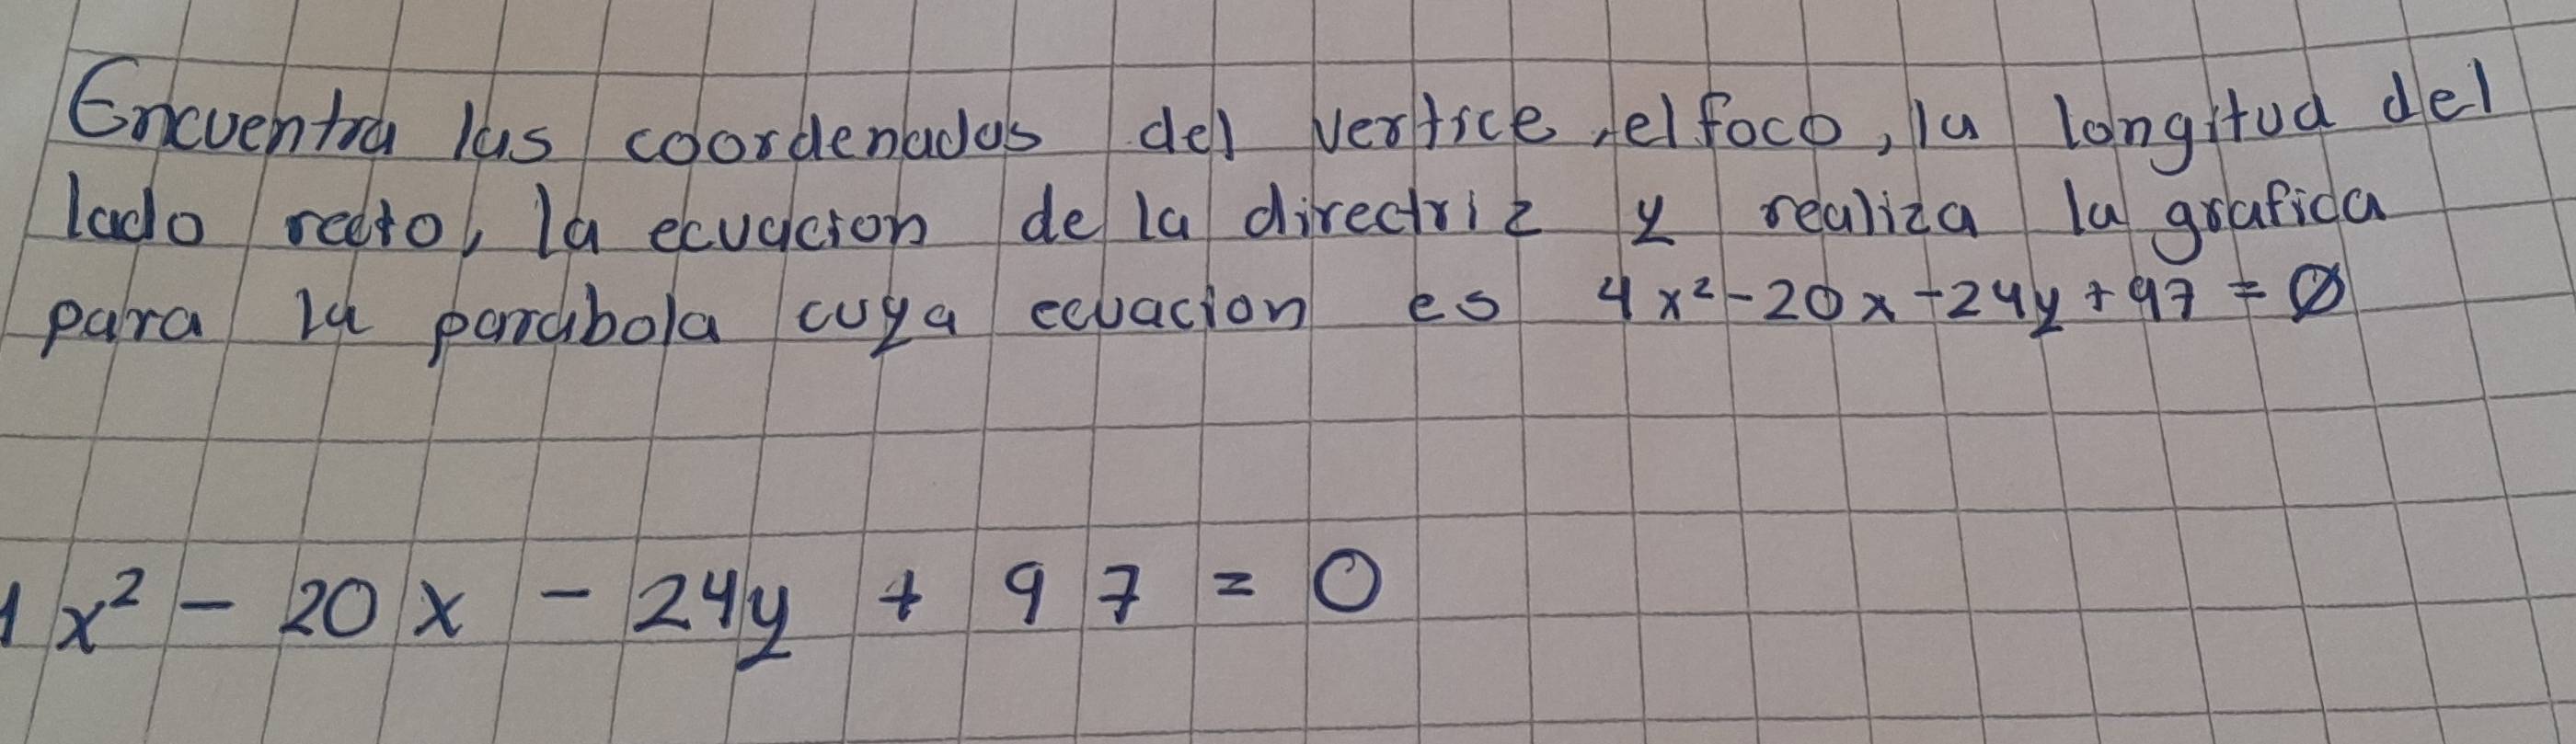 Encuentra las coordenadas del vertice, el foco, la longitud del
lado recto, la ecuacion de la directriz y realiza la grafica
para la parabola cuya ecuacion es 4x² - 20x - 24y + 97 = 0
x² - 20x - 24y + 97 = 0